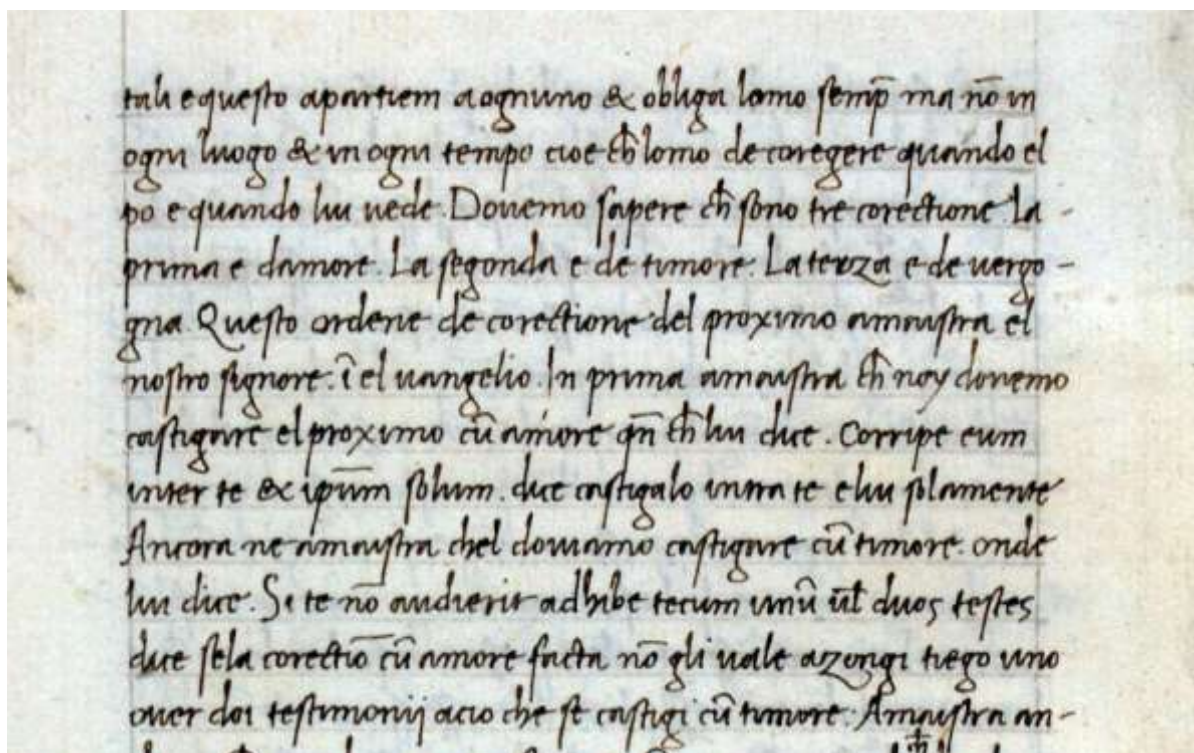 tali e questo apartiem a ognuno & obliga lomo semp̄ ma nō in
ogni luogo & in ogni tempo cioe ch̄ lomo de coregere quando el
po e quando lui uede. Douemo sapere ch̄ sono tre corectione. La -
prima e damore. La segonda e de timore. La terza e de vergo -
gna. Questo ordene de corectione del proximo amaistra el
nostro signore. ī el uangelio. In prima amaistra ch̄ noy douemo
castigare el proximo cū amore qn̄ ch̄ lui dice. Corripe eum
inter te & ip̄um solum. dice castigalo intra te e lui solamente
Ancora ne amaistra chel douiamo castigare cū timore. onde
lui dice. Si te nō audierit adhibe tecum unū ūl duos testes
dice se la corectiō cū amore facta nō gli uale azongi tiego uno
ouer doi testimonij acio che se castigi cū timore. Amaistra an-